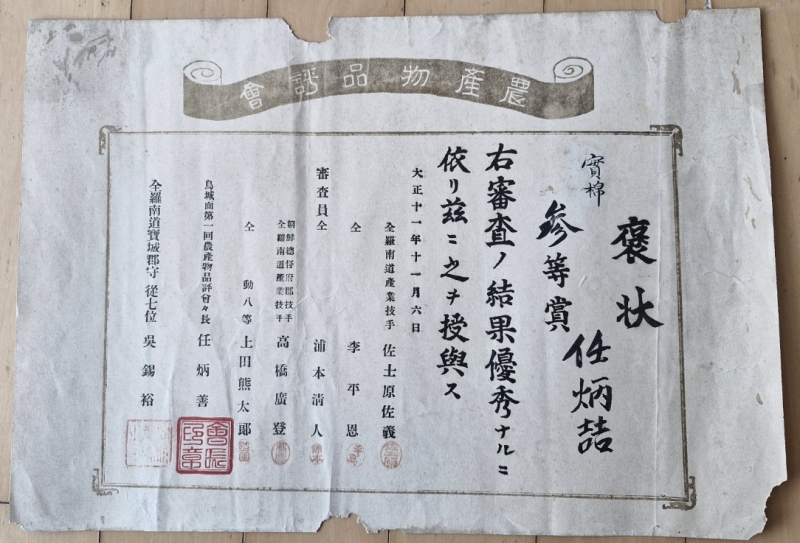 農產物品評會
褒狀
任炳喆
實棉
參等賞
右審査ノ結果優秀ナルニ
依リ茲ニ之ヲ授與ス
大正十一年十一月六日
全羅南道產業技手 佐土原佐義
仝 李平恩
審査員 仝 浦本清人
朝鮮總督府郡技手
全羅南道產業技手 高橋廣登
仝 勳八等 上田熊太郞
鳥城面第一回農產物品評會々長 任炳善
全羅南道寶城郡守 從七位 吳錫裕
會長
印章